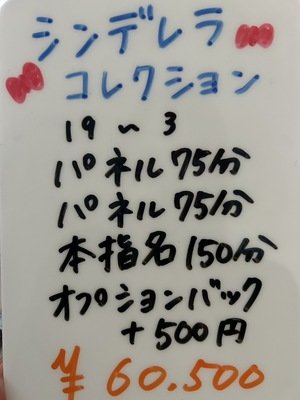 シンデレラ
コレクション
19～3
パネル75分
パネル75分
本指名150分
オプションバック
+500円
¥60.500